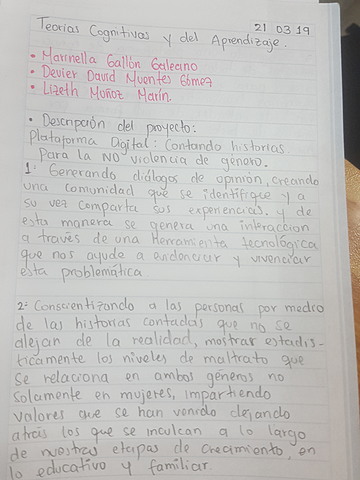 21 03 19
Teorías Cognitivas y del Aprendizaje.
• Marinella Gallón Galeano
• Devier David Muentes Gómez
• Lizeth Muñoz Marín.
• Descripción del proyecto:
Plataforma Digital: Contando historias
Para la NO violencia de género.
1: Generando diálogos de opinión, creando
una comunidad que se identifique y a
su vez comparta sus experiencias. y de
esta manera se genera una interacción
a través de una Herramienta tecnológica
que nos ayude a evidenciar y vivenciar
esta problemática
2: Conscientizando a las personas por medio
de las historias contadas que no se
alejan de la realidad, mostrar estadis-
ticamente los niveles de maltrato que
se relaciona en ambos géneros no
solamente en mujeres, impartiendo
valores que se han venido dejando
atrás los que se inculcan a lo largo
de nuestras etapas de crecimiento, en
lo educativo y familiar.